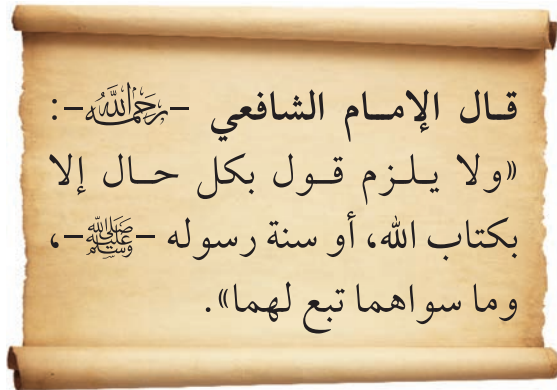 قـال الإمـام الشافعي –رحمه الله–:
«ولا يـلـزم قـول بكل حـال إلا
بكتاب الله، أو سنة رسوله –صلى الله عليه وسلم–،
وما سواهما تبع لهما».